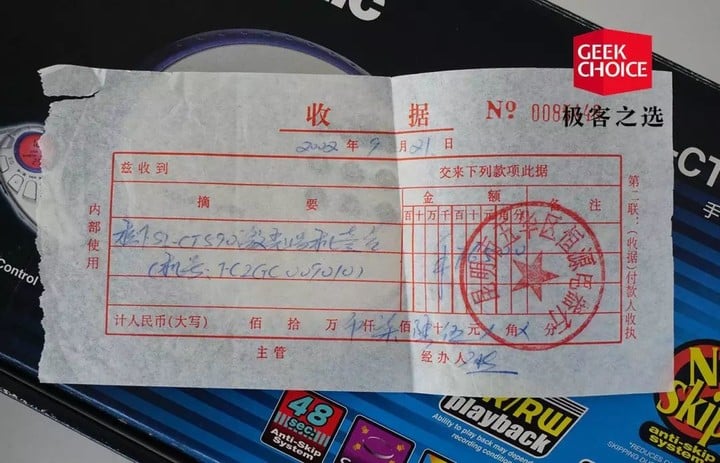 GEEK
CHOICE
极客之选
收 据 Nº
年 9 月 21 日
兹收到 交来下列款项此据
摘 要 金 额 备 注
百 十 万 千 百 十 元 角 分
松下SL-CT590激光唱机壹台
(机号:
计人民币(大写) 佰 拾 万 仟 柒 佰 陆 十 伍 元 角 分
主管 经办人
内部使用
第二联:(收据)付款人收执
昆明市五华区恒源电器行
-CT
手
Control
48
sec.
Anti-Skip
System
R/RW
playback
Ability to play back may depend
recording condition
Skip
anti-skip
system